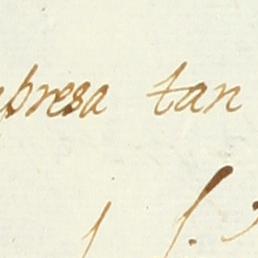 presa tan